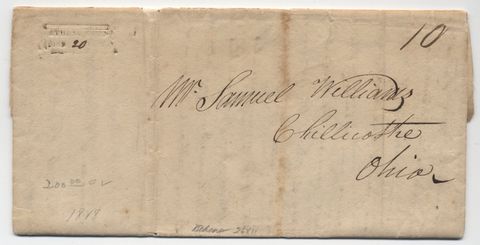 20
10
Mr. Samuel Williams
Chillicothe
Ohio
200 00
1819